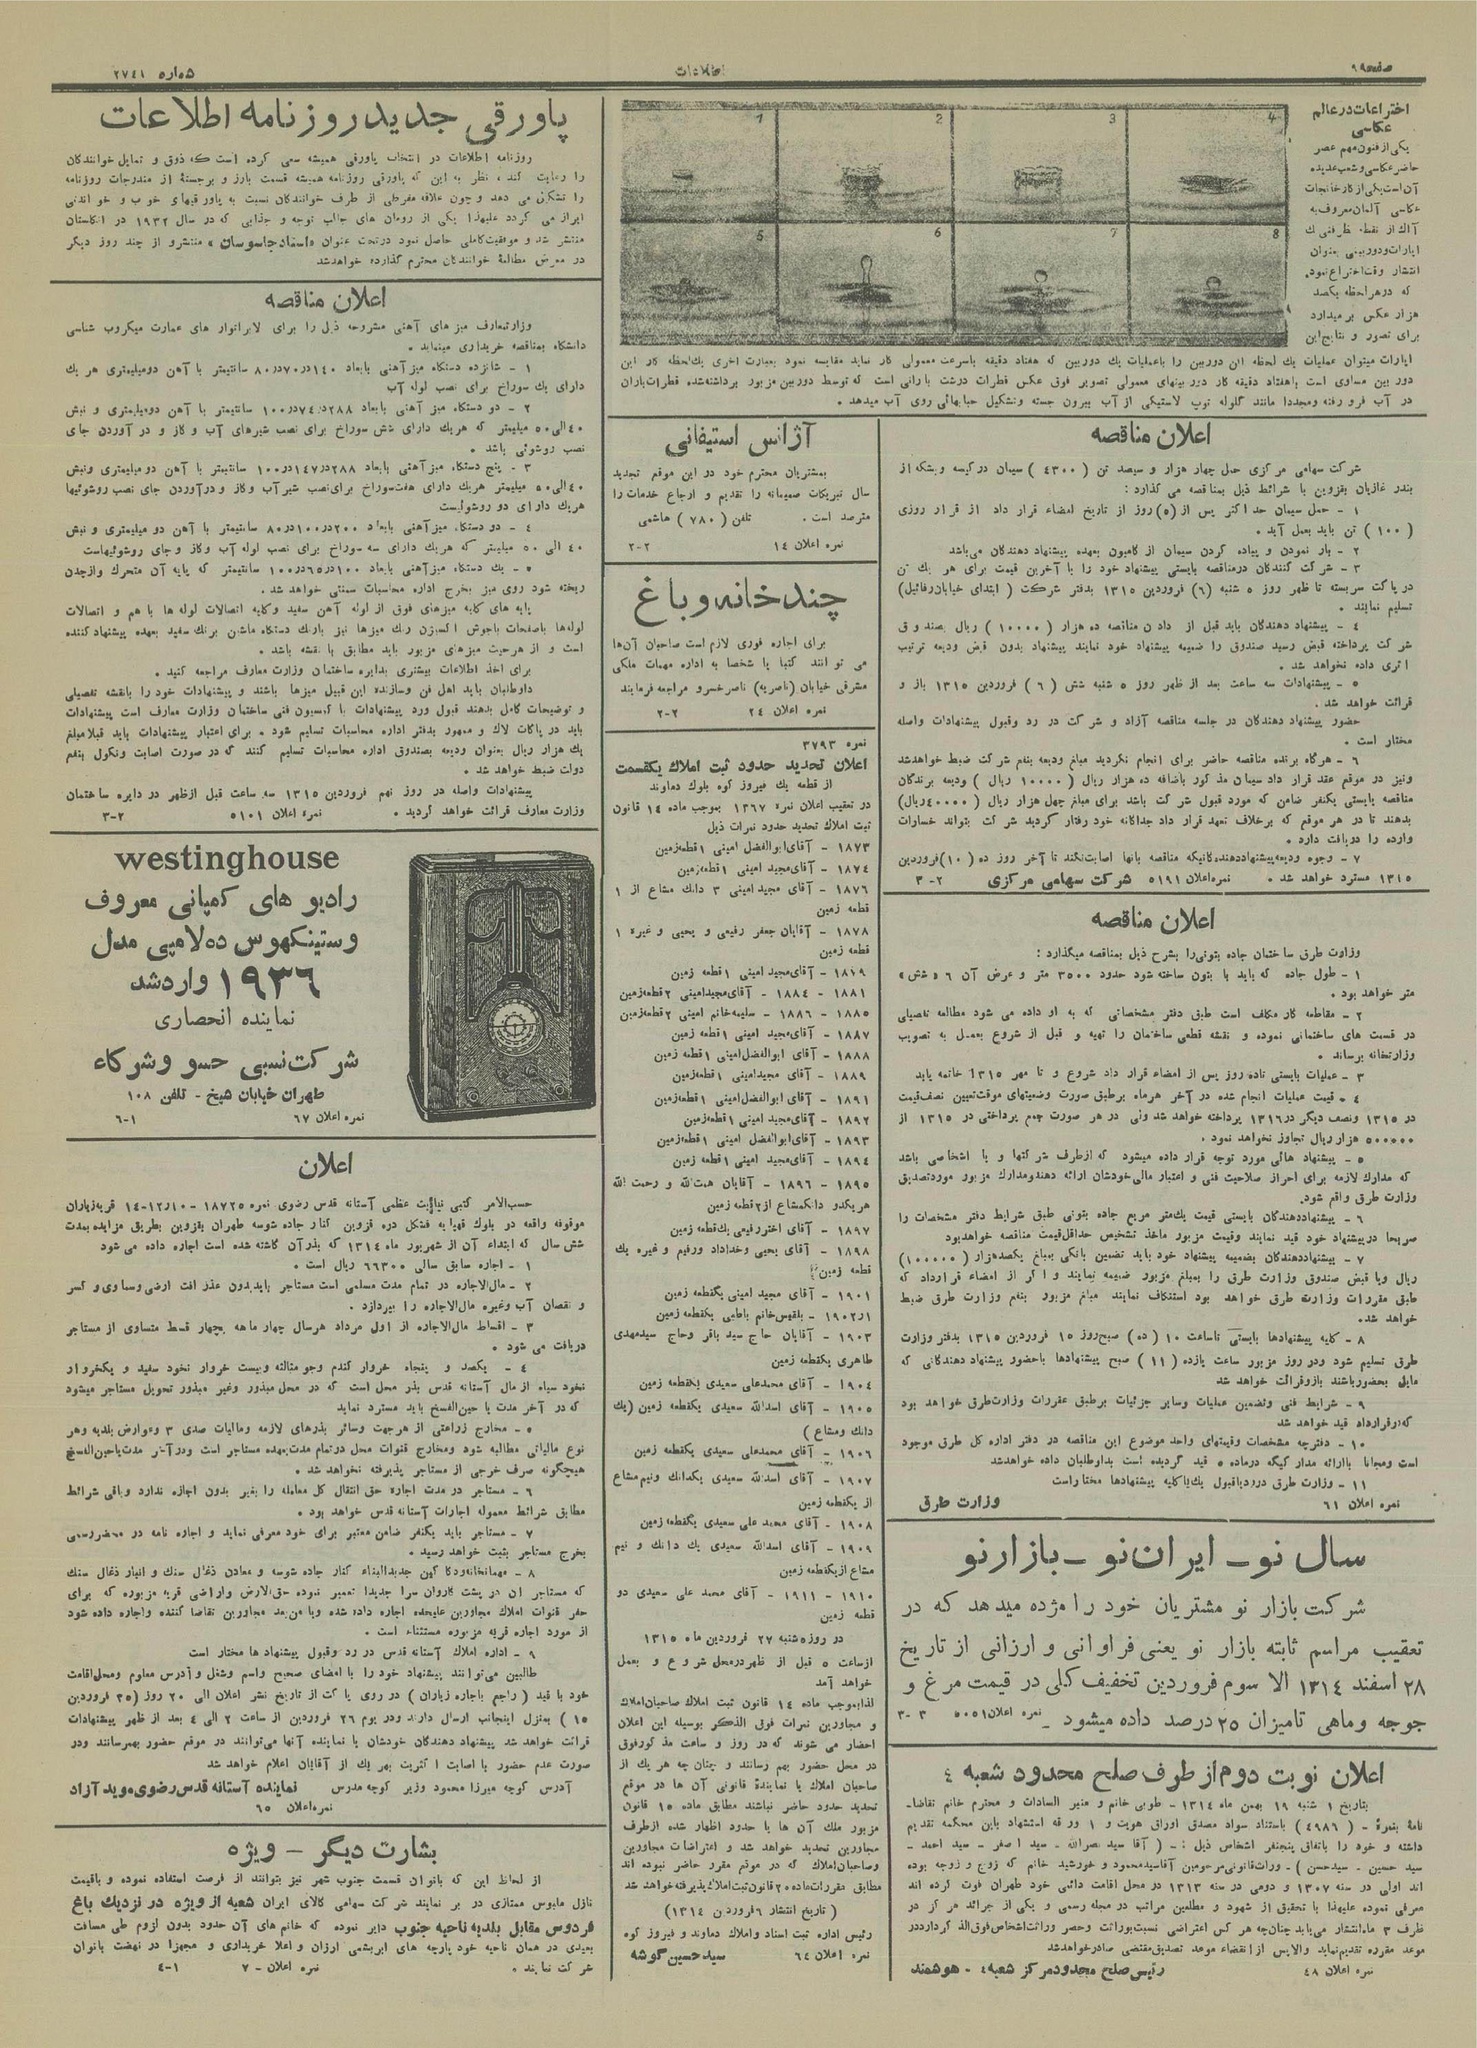 صفحه ۹۹
اطلاعات
شماره ۲۷۴۱
اختراعات در عالم
عکاسی
یکی از فنون مهم عصر
حاضر عکاسی و شعب عدیده
آن است یکی از کارخانجات
عکاسی آلمان معروف به
آاک از نقطه نظر فنی ک
اپارات و دوربینی بعنوان
انتشار وقت اختراع نمود.
که در هر لحظه یکصد
هزار عکس بر میدارد
برای تصور و نتایج این
1
2
3
4
5
6
7
8
اپارات میتوان عملیات یک لحظه این دوربین را با عملیات یک دوربین که هفتاد دقیقه با سرعت معمولی کار نماید مقایسه نمود بعبارت اخری یک لحظه کار این
دوربین مساوی است با هفتاد دقیقه کار دوربینهای معمولی تصویر فوق عکس قطرات درشت بارانی است که توسط دوربین مزبور برداشته شده قطرات باران
در آب فرو رفته و مجددا مانند گلوله توپ لاستیکی از آب بیرون جسته و تشکیل حبابهائی روی آب میدهد .
اعلان مناقصه
شرکت سهامی مرکزی حمل چهار هزار و سیصد تن ( ۴۳۰۰ ) سیمان در کیسه و بشکه از
بندر غازیان بقزوین با شرائط ذیل بمناقصه می گذارد :
۱ - حمل سیمان حداکثر پس از (۵) روز از تاریخ امضاء قرار داد از قرار روزی
( ۱۰۰ ) تن باید بعمل آید .
۲ - بار نمودن و پیاده کردن سیمان از کامیون بعهده پیشنهاد دهندگان می‌باشد
۳ - شرکت کنندگان در مناقصه بایستی پیشنهاد خود را با آخرین قیمت برای هر یک تن
در پاکت سربسته تا ظهر روز ۵ شنبه (۶) فروردین ۱۳۱۵ بدفتر شرکت ( ابتدای خیابان رفائیل)
تسلیم نمایند .
۴ - پیشنهاد دهندگان باید قبل از دادن مناقصه ده هزار ( ۱۰۰۰۰ ) ریال بصندوق
شرکت پرداخته قبض رسید صندوق را ضمیمه پیشنهاد خود نمایند پیشنهاد بدون قبض ودیعه ترتیب
اثری داده نخواهد شد .
۵ - پیشنهادات سه ساعت بعد از ظهر روز ۵ شنبه شش ( ۶ ) فروردین ۱۳۱۵ باز و
قرائت خواهد شد .
حضور پیشنهاد دهندگان در جلسه مناقصه آزاد و شرکت در رد و قبول پیشنهادات واصله
مختار است .
۶ - هرگاه برنده مناقصه حاضر برای انجام نگردید مبلغ ودیعه بنفع شرکت ضبط خواهد شد
و نیز در موقع عقد قرار داد سیمان مذکور باضافه ده هزار ریال ( ۱۰۰۰۰ ریال ) ودیعه برندگان
مناقصه بایستی یکنفر ضامن که مورد قبول شرکت باشد برای مبلغ چهل هزار ریال (۴۰۰۰۰ ریال)
بدهند تا در هر موقع که برخلاف تعهد قرار داد جداگانه خود رفتار گردید شرکت بتواند خسارات
وارده را دریافت دارد .
۷ - وجوه ودیعه پیشنهاد دهندگانیکه مناقصه بآنها اصابت نکند تا آخر روز ده (۱۰) فروردین
۱۳۱۵ مسترد خواهد شد . نمره اعلان ۵۱۹۱ شرکت سهامی مرکزی ۲-۳
اعلان مناقصه
وزارت طرق ساختمان جاده بتونی را بشرح ذیل بمناقصه میگذارد :
۱ - طول جاده که باید با بتون ساخته شود حدود ۳۵۰۰ متر و عرض آن ۶ «شش»
متر خواهد بود .
۲ - مقاطعه کار مکلف است طبق دفتر مشخصاتی که به او داده می شود مطالعه تفصیلی
در قسمت های ساختمانی نموده و نقشه قطعی ساختمان را تهیه و قبل از شروع بعمل به تصویب
وزارتخانه برساند .
۳ - عملیات بایستی تا ده روز پس از امضاء قرار داد شروع و تا مهر ۱۳۱۵ خاتمه یابد
۴ - قیمت عملیات انجام شده در آخر هر ماه بر طبق صورت وضعیتهای موقت تعیین نصف قیمت
در ۱۳۱۵ و نصف دیگر در ۱۳۱۶ پرداخته خواهد شد ولی در هر صورت جمع پرداختی در ۱۳۱۵ از
۵۰۰۰۰۰ هزار ریال تجاوز نخواهد نمود .
۵ - پیشنهاد هائی مورد توجه قرار داده میشود که از طرف شرکتها و یا اشخاصی باشد
که مدارک لازمه برای احراز صلاحیت فنی و اعتبار مالی خودشان ارائه دهند و مدارک مزبور مورد تصدیق
وزارت طرق واقع شود.
۶ - پیشنهاد دهندگان بایستی قیمت یک متر مربع جاده بتونی طبق شرایط دفتر مشخصات را
صریحا در پیشنهاد خود قید نمایند و قیمت مزبور ماخذ تشخیص حداقل قیمت مناقصه خواهد بود
۷ - پیشنهاد دهندگان بضمیمه پیشنهاد خود باید تضمین بانکی بمبلغ یکصد هزار (۱۰۰۰۰۰)
ریال و یا قبض صندوق وزارت طرق را بمبلغ مزبور ضمیمه نمایند و اگر از امضاء قرارداد که
طبق مقررات وزارت طرق خواهد بود استنکاف نمایند مبلغ مزبور بنفع وزارت طرق ضبط
خواهد شد.
۸ - کلیه پیشنهادها بایستی تا ساعت ۱۰ (ده) صبح روز ۱۵ فروردین ۱۳۱۵ بدفتر وزارت
طرق تسلیم شود و در روز مزبور ساعت یازده (۱۱) صبح پیشنهادها با حضور پیشنهاد دهندگانی که
مایل بحضور باشند باز و قرائت خواهد شد
۹ - شرایط فنی و تضمین عملیات و سایر جزئیات بر طبق مقررات وزارت طرق خواهد بود
که در قرارداد قید خواهد شد
۱۰ - دفترچه مشخصات و قیمتهای واحد موضوع این مناقصه در دفتر اداره کل طرق موجود
است و مجانا با ارائه مدارکیکه در ماده ۵ قید گردیده است بداوطلبان داده خواهد شد
۱۱ - وزارت طرق در رد یا قبول یک یا کلیه پیشنهادها مختار است
نمره اعلان ۶۱ وزارت طرق
سال نو - ایران نو - بازار نو
شرکت بازار نو مشتریان خود را مژده میدهد که در
تعقیب مراسم ثابته بازار نو یعنی فراوانی و ارزانی از تاریخ
۲۸ اسفند ۱۳۱۴ الا سوم فروردین تخفیف کلی در قیمت مرغ و
جوجه و ماهی تا میزان ۲۵ درصد داده میشود - نمره اعلان ۵۰۵۱ ۳-۳
اعلان نوبت دوم از طرف صلح محدود شعبه ۴
بتاریخ ۱ شنبه ۱۹ بهمن ماه ۱۳۱۴ - طوبی خانم و منیر السادات و محترم خانم تقاضا-
نامهٔ بنمرهٔ - (۴۹۸۶) باستناد سواد مصدق اوراق هویت و ۱ ورقه استشهاد باین محکمه تقدیم
داشته و خود را باتفاق پنجنفر اشخاص ذیل : - ( آقا سید نصرالله - سید اصغر - سید احمد -
سید حسین - سید حسن ) - وراث قانونی مرحومین آقا سید محمود و خورشید خانم که زوج و زوجه بوده
اند اولی در سنه ۱۳۰۷ و دومی در سنه ۱۳۱۳ در محل اقامت دائمی خود طهران فوت کرده اند
معرفی نموده علیهذا با تحقیق از شهود و مطلعین مراتب در مجله رسمی و یکی از جرائد هر کز در
ظرف ۳ ماه انتشار می‌یابد چنانچه هر کس اعتراضی نسبت بوراثت و حصر وراثت اشخاص فوق الذکر دارد در
موعد مقرره تقدیم نماید والا پس از انقضاء موعد تصدیق مقتضی صادر خواهد شد
نمره اعلان ۴۸ رئیس صلح محدود مرکز شعبه ۴ - هوشمند
آژانس استیفانی
بمشتریان محترم خود در این موقع تجدید
سال تبریکات صمیمانه را تقدیم و ارجاع خدمات را
مترصد است . تلفن ( ۷۸۰ ) هاشمی
نمره اعلان ۱۴ ۲-۲
چند خانه و باغ
برای اجاره فوری لازم است صاحبان آن‌ها
می توانند کتبا یا شخصا به اداره مهمات ملکی
مشرقی خیابان (ناصریه) ناصر خسرو مراجعه فرمایند
نمره اعلان ۲۴ ۲-۲
نمره ۳۷۹۳
اعلان تحدید حدود ثبت املاک یکقسمت
از قطعه یک فیروز کوه بلوک دماوند
در تعقیب اعلان نمره ۱۳۶۷ بموجب ماده ۱۴ قانون
ثبت املاک تحدید حدود نمرات ذیل
۱۸۷۳ - آقای ابوالفضل امینی ۱ قطعه زمین
۱۸۷۴ - آقای مجید امینی ۱ قطعه زمین
۱۸۷۶ - آقای مجید امینی ۳ دانک مشاع از ۱
قطعه زمین
۱۸۷۸ - آقایان جعفر رفیعی و یحیی و غیره ۱
قطعه زمین
۱۸۷۹ - آقای مجید امینی ۱ قطعه زمین
۱۸۸۱ - ۱۸۸۴ - آقای مجید امینی ۲ قطعه زمین
۱۸۸۵ - ۱۸۸۶ - سلیمه خانم امینی ۲ قطعه زمین
۱۸۸۷ - آقای مجید امینی ۱ قطعه زمین
۱۸۸۸ - آقای ابوالفضل امینی ۱ قطعه زمین
۱۸۸۹ - آقای مجید امینی ۱ قطعه زمین
۱۸۹۱ - آقای ابوالفضل امینی ۱ قطعه زمین
۱۸۹۲ - آقای مجید امینی ۱ قطعه زمین
۱۸۹۳ - آقای ابوالفضل امینی ۱ قطعه زمین
۱۸۹۴ - آقای مجید امینی ۱ قطعه زمین
۱۸۹۵ - ۱۸۹۶ - آقایان همت الله و رحمت الله
هر یک دو دانک مشاع از ۲ قطعه زمین
۱۸۹۷ - آقای اختر رفیعی یک قطعه زمین
۱۸۹۸ - آقای یحیی و خداداد و رفیع و غیره یک
قطعه زمین
۱۹۰۱ - آقای مجید امینی یکقطعه زمین
۱ر۱۹۰۲ - بلقیس خانم یکقطعه زمین
۱۹۰۳ - آقایان حاج سید باقر و حاج سید مهدی
طاهری یکقطعه زمین
۱۹۰۴ - آقای محمد علی سعیدی یکقطعه زمین
۱۹۰۵ - آقای اسدالله سعیدی یکقطعه زمین (یک
دانک و مشاع )
۱۹۰۶ - آقای محمد علی سعیدی یکقطعه زمین
۱۹۰۷ - آقای اسدالله سعیدی یکدانک و نیم مشاع
از یکقطعه زمین
۱۹۰۸ - آقای محمد علی سعیدی یکقطعه زمین
۱۹۰۹ - آقای اسدالله سعیدی یک دانک و نیم
مشاع از یکقطعه زمین
۱۹۱۰ - ۱۹۱۱ - آقای محمد علی سعیدی دو
قطعه زمین
در روز ۵ شنبه ۲۷ فروردین ماه ۱۳۱۵
از ساعت ۵ قبل از ظهر در محل شروع و بعمل
خواهد آمد
لذا بموجب ماده ۱۴ قانون ثبت املاک صاحبان املاک
و مجاورین نمرات فوق الذکر بوسیله این اعلان
احضار می شوند که در روز و ساعت مذکور فوق
در محل حضور بهم رسانند و چنان چه هر یک از
صاحبان املاک یا نمایندهٔ قانونی آن ها در موقع
تحدید حدود حاضر نباشند مطابق ماده ۱۵ قانون
مزبور ملک آن ها با حدود اظهار شده از طرف
مجاورین تحدید خواهد شد و اعتراضات مجاورین
و صاحبان املاک که در موقع مقرر حاضر نبوده اند
مطابق مقررات ماده ۲۰ قانون ثبت املاک پذیرفته خواهد شد
( تاریخ انتشار ۶ فروردین ۱۳۱۴)
رئیس اداره ثبت اسناد و املاک دماوند و فیروز کوه
نمره اعلان ۶۴ سید حسین گوشه
پاورقی جدید روزنامه اطلاعات
روزنامه اطلاعات در انتخاب پاورقی همیشه سعی کرده است که ذوق و تمایل خوانندگان
را رعایت کند ، نظر به این که پاورقی روزنامه همیشه قسمت بارز و برجستهٔ از مندرجات روزنامه
را تشکیل می دهد و چون علاقه مفرطی از طرف خوانندگان نسبت به پاورقیهای خوب و خواندنی
ابراز می گردد علیهذا یکی از رومان های جالب توجه و جذابی که در سال ۱۹۳۲ در انگلستان
منتشر شد و موفقیت کاملی حاصل نمود در تحت عنوان «استاد جاسوسان» منتشر و از چند روز دیگر
در معرض مطالعهٔ خوانندگان محترم گذارده خواهد شد
اعلان مناقصه
وزارتمعارف میزهای آهنی مشروحه ذیل را برای لابراتوار های عمارت میکروب شناسی
دانشگاه بمناقصه خریداری مینماید .
۱ - شانزده دستگاه میز آهنی بابعاد ۱۴۰ در ۷۰ در ۸۰ سانتیمتر با آهن دو میلیمتری هر یک
دارای یک سوراخ برای نصب لوله آب
۲ - دو دستگاه میز آهنی بابعاد ۲۸۸ در ۷۴ در ۱۰۰ سانتیمتر با آهن دو میلیمتری و نبش
۴۰ الی ۵۰ میلیمتر که هر یک دارای شش سوراخ برای نصب شیرهای آب و گاز و در آوردن جای
نصب روشوئی باشد .
۳ - پنج دستگاه میز آهنی بابعاد ۲۸۸ در ۱۴۷ در ۱۰۰ سانتیمتر با آهن دو میلیمتری و نبش
۴۰ الی ۵۰ میلیمتر هر یک دارای هفت سوراخ برای نصب شیر آب و گاز و در آوردن جای نصب روشوئیها
هر یک دارای دو روشوئیست
۴ - دو دستگاه میز آهنی بابعاد ۲۰۰ در ۱۰۰ در ۸۰ سانتیمتر با آهن دو میلیمتری و نبش
۴۰ الی ۵۰ میلیمتر که هر یک دارای سه سوراخ برای نصب لوله آب و گاز و جای روشوئیهاست
۵ - یک دستگاه میز آهنی بابعاد ۱۰۰ در ۶۵ در ۱۰۰ سانتیمتر که پایه آن متحرک و از چدن
ریخته شود روی میز بخرج اداره محاسبات سمنتی خواهد شد .
پایه های کلیه میزهای فوق از لوله آهن سفید و کلیه اتصالات لوله ها با هم و اتصالات
لوله‌ها با صفحات با جوش اکسیژن رنگ میزها نیز با رنگ دستگاه ماشن برنگ سفید بعهده پیشنهاد کننده
است و از هر حیث میزهای مزبور باید مطابق با نقشه باشد .
برای اخذ اطلاعات بیشتری بدایره ساختمان وزارت معارف مراجعه کنید .
داوطلبان باید اهل فن و سازنده این قبیل میزها باشند و پیشنهادات خود را با نقشه تفصیلی
و توضیحات کامل بدهند قبول و رد پیشنهادات با کمیسیون فنی ساختمان وزارت معارف است پیشنهادات
باید در پاکات لاک و ممهور بدفتر اداره محاسبات تسلیم شود . برای اعتبار پیشنهادات باید قبلا مبلغ
یک هزار ریال بعنوان ودیعه بصندوق اداره محاسبات تسلیم کنند که در صورت اصابت و نکول بنفع
دولت ضبط خواهد شد .
پیشنهادات واصله در روز نهم فروردین ۱۳۱۵ سه ساعت قبل از ظهر در دایره ساختمان
وزارت معارف قرائت خواهد گردید . نمره اعلان ۵۱۰۱ ۲-۳
westinghouse
رادیو های کمپانی معروف
وستینگهوس ده لامپی مدل
۱۹۳۶ وارد شد
نماینده انحصاری
شرکت نسبی حسو و شرکاء
طهران خیابان شیخ - تلفن ۱۰۸
نمره اعلان ۶۷ ۱-۶
اعلان
حسب‌الامر کتبی نیابت عظمی آستانه قدس رضوی نمره ۱۸۷۲۵ - ۱۴/۱۲/۱۰ قریه زیاران
موقوفه واقعه در بلوک قهپایه فشگل دره قزوین کنار جاده شوسه طهران بقزوین بطریق مزایده بمدت
شش سال که ابتداء آن از شهریور ماه ۱۳۱۴ که بذر آن کاشته شده است اجاره داده می شود
۱ - اجاره سابق سالی ۶۶۳۰۰ ریال است .
۲ - مال‌الاجاره در تمام مدت مسلمی است مستاجر باید بدون عذر آفت ارضی و سماوی و کسر
و نقصان آب و غیره مال‌الاجاره را بپردازد .
۳ - اقساط مال‌الاجاره از اول مرداد هر سال چهار ماهه بچهار قسط متساوی از مستاجر
دریافت می شود .
۴ - یکصد و پنجاه خروار گندم و جو مثالثه و بیست خروار نخود سفید و یکخروار
نخود سیاه از مال آستانه قدس بذر محل است که در محل مبذور و غیر مبذور تحویل مستاجر میشود
که در آخر مدت یا حین‌الفسخ باید مسترد نماید
۵ - مخارج زراعتی از هر جهت و سائر بذرهای لازمه و مالیات صدی ۳ و عوارض بلدیه و هر
نوع مالیاتی مطالبه شود و مخارج قنوات محل در تمام مدت بعهده مستاجر است و در آخر مدت یا حین‌الفسخ
هیچگونه صرف خرجی از مستاجر پذیرفته نخواهد شد .
۶ - مستاجر در مدت اجاره حق انتقال کل معامله را بغیر بدون اجازه ندارد و باقی شرائط
مطابق شرائط معموله اجارات آستانه قدس خواهد بود .
۷ - مستاجر باید یکنفر ضامن معتبر برای خود معرفی نماید و اجاره نامه در محضر رسمی
بخرج مستاجر بثبت خواهد رسید .
۸ - مهمانخانه و دکاکین جدیدالبناء کنار جاده شوسه و معادن ذغال سنگ و انبار ذغال سنگ
که مستاجر آن در پشت کاروان سرا جدیدا تعمیر نموده حق‌الارض و اراضی قریه مزبوره که برای
حفر قنوات املاک مجاورین علیحده اجاره داده شده و یا من‌بعد مجاورین تقاضا کننده و اجاره داده شود
از مورد اجاره قریه مزبوره مستثناء است .
۹ - اداره املاک آستانه قدس در رد و قبول پیشنهاد ها مختار است
طالبین می‌توانند پیشنهاد خود را با امضای صحیح و اسم و شغل و آدرس معلوم و محل اقامت
خود با قید ( راجع باجاره زیاران ) در روی پاکت از تاریخ نشر اعلان الی ۲۰ روز (۲۵ فروردین
۱۵ ) بمنزل اینجانب ارسال دارند و در یوم ۲۶ فروردین از ساعت ۲ الی ۴ بعد از ظهر پیشنهادات
قرائت خواهد شد پیشنهاد دهندگان خودشان یا نماینده آنها می‌توانند در موقع حضور بهم رسانند و در
صورت عدم حضور با اصابت اکثریت بهر یک از آقایان اعلام خواهد شد
آدرس کوچه میرزا محمود وزیر کوچه مدرس نماینده آستانه قدس رضوی موید آزاد
نمره اعلان ۶۵
بشارت دیگر - ویژه
از لحاظ این که بانوان قسمت جنوب شهر نیز بتوانند از فرصت استفاده نموده و باقیمت
نازل ملبوس ممتازی در بر نمایند شرکت سهامی کالای ایران شعبه از ویژه در نزدیک باغ
فردوس مقابل بلدیه ناحیه جنوب دایر نموده که خانم های آن حدود بدون لزوم طی مسافت
بعیدی در همان ناحیه خود پارچه های ابریشمی ارزان و اعلا خریداری و مجهزا در نهضت بانوان
شرکت نمایند . نمره اعلان - ۷ ۱-۴